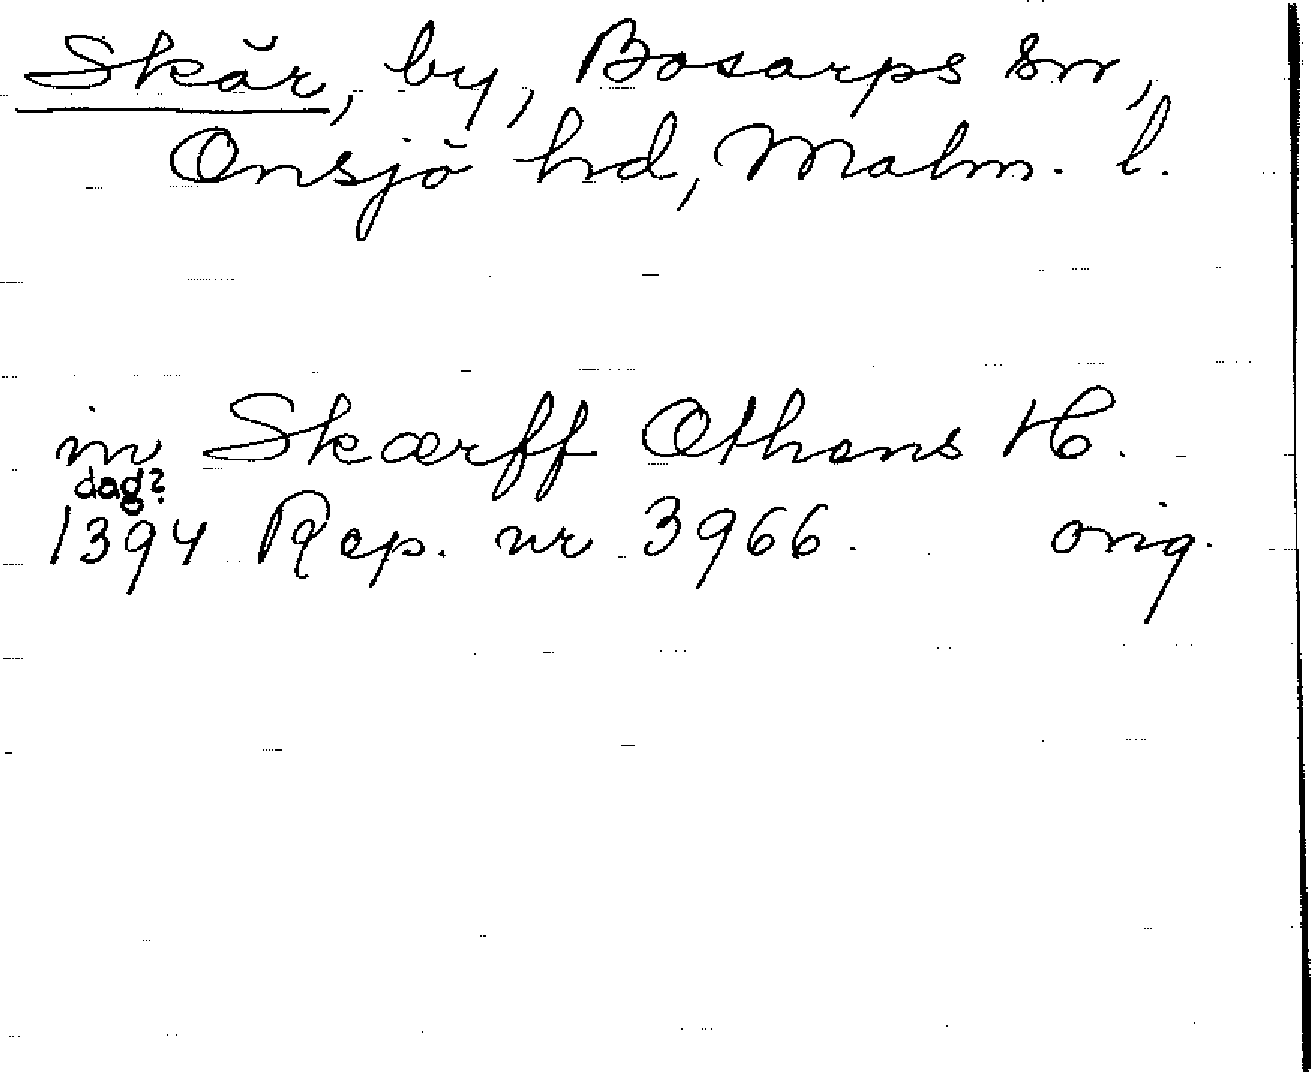 Skär, by, Bosarps sn,
Onsjö hd, Malm. l.
in Skærff Othens H.
dag?
1394 Rep. nr 3966. orig.